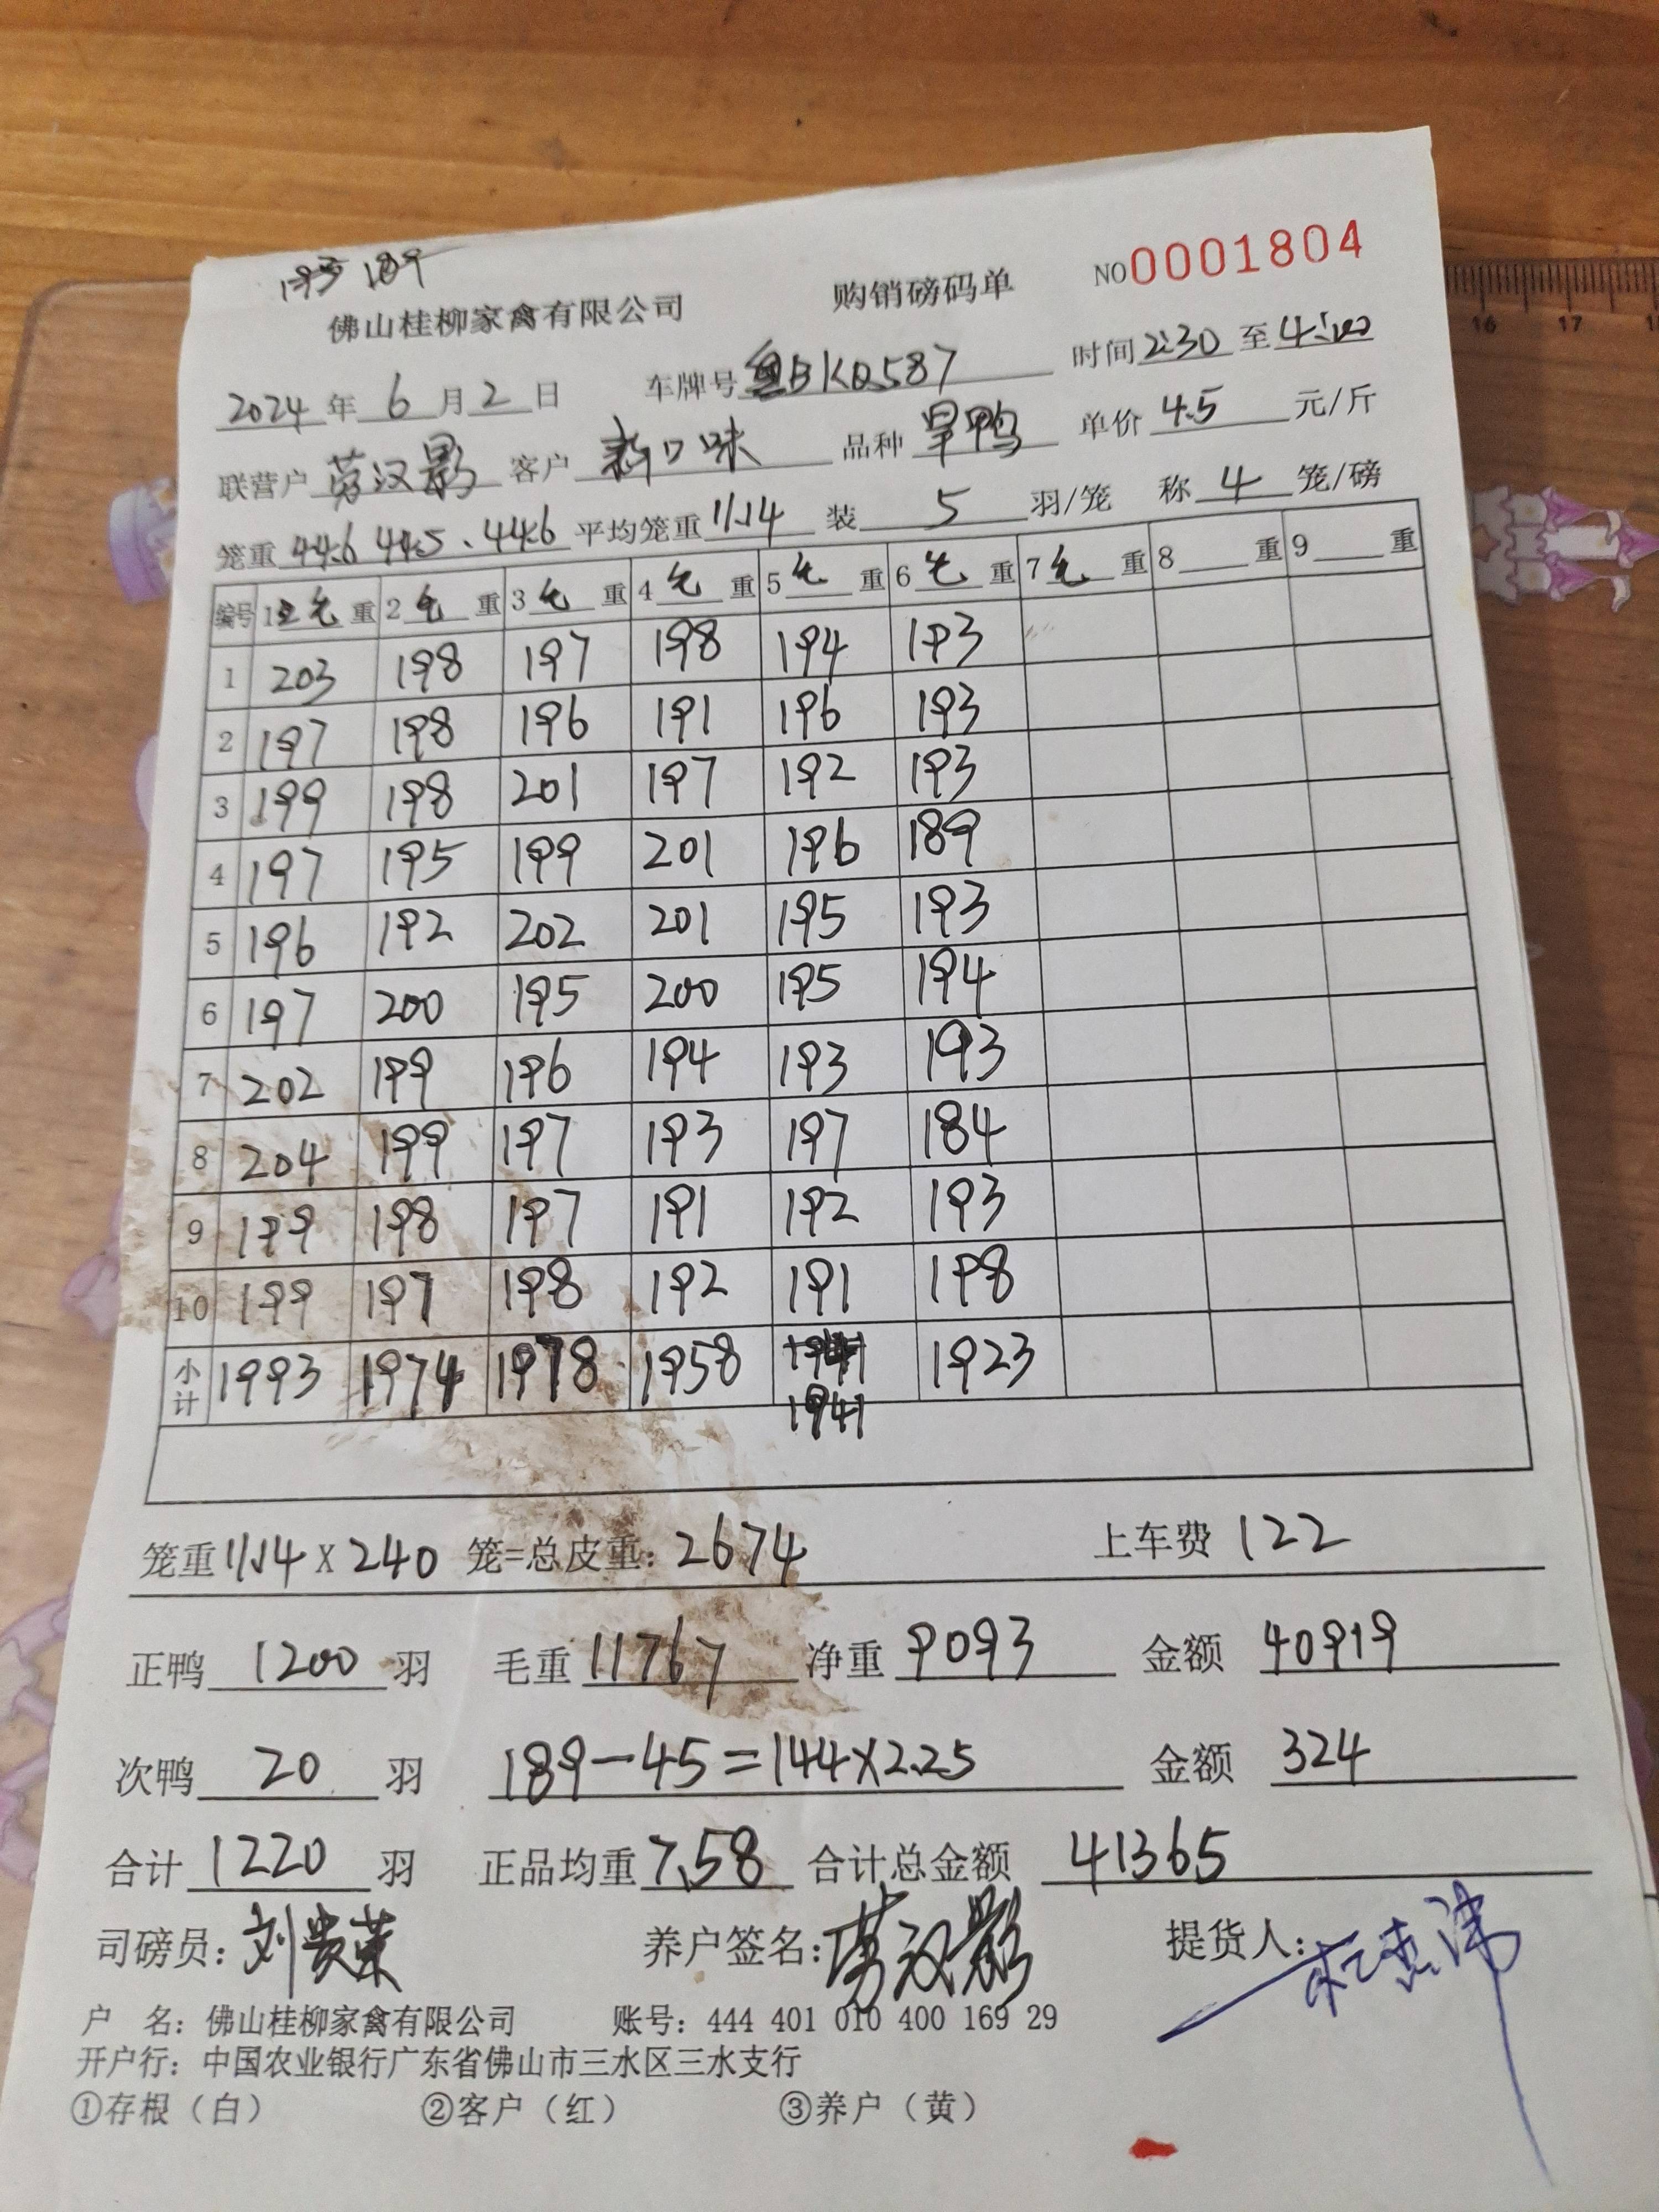 193 189
佛山桂柳家禽有限公司 购销磅码单 NO0001804
2024年6月2日 车牌号粤BKQ587 时间2:30至4:00
联营户劳汉影 客户新口味 品种旱鸭 单价4.5元/斤
笼重44.6 44.5、44.6 平均笼重11.14 装5羽/笼 称4笼/磅
编号 1正毛重 2毛重 3毛重 4毛重 5毛重 6毛重 7毛重 8重 9重
1 203 198 197 198 194 193
2 197 198 196 191 196 193
3 199 198 201 197 192 193
4 197 195 199 201 196 189
5 196 192 202 201 195 193
6 197 200 195 200 195 194
7 202 199 196 194 193 193
8 204 199 197 193 197 184
9 199 198 197 191 192 193
10 199 197 198 192 191 198
小计 1993 1974 1978 1958 1941 1923
笼重11.14X240笼=总皮重:2674 上车费122
正鸭1200羽 毛重11767 净重9093 金额40919
次鸭20羽 189-45=144X2.25 金额324
合计1220羽 正品均重7.58 合计总金额41365
司磅员:刘贵荣 养户签名:劳汉影 提货人:
户 名:佛山桂柳家禽有限公司 账号:444 401 010 400 169 29
开户行:中国农业银行广东省佛山市三水区三水支行
①存根(白) ②客户(红) ③养户(黄)